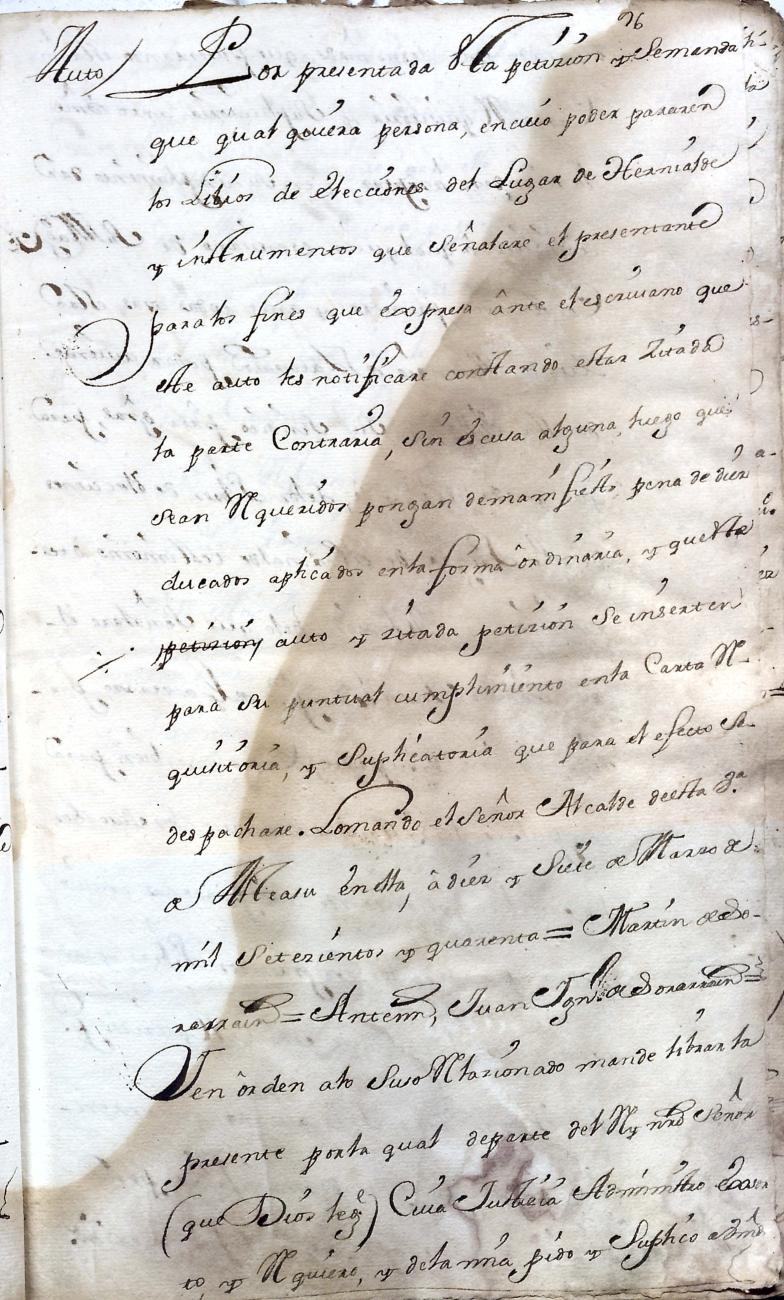 26
Auto) Por presentada esta petizion y Semanda
que qual quiera persona, encuio poder pararen
los Libros de elecciones del Lugar de Hernialde
y instrumentos que Señalare el presentante
para los fines que expresa ânte el escriuano que
este auto les notificare constando estar Zitada
la parte Contraria, sin escusa alguna, luego que
sean Rqueridos pongan demanifiesto, pena de diez
ducados aplicados enla forma ôrdinaria, y queste
petizion auto y zitada petizion Se inserten
para su puntual cumplimiento enla Carta R-
quisitoria, y Suplicatoria que para el efecto Se
despachare. Lomando el Señor Alcalde deesta
de en ella, â diez y Siete de Marzo de
mil Setezientos y quarenta = Martin de So-
rarrain = Antemi, Juan Ign.º de Sorarrain =
Yen ôrden alo Suso Rlazionado mande librar la
presente porla qual departe del Ry nrô Señor
(que Dios) Cuia Justicia Administro exsor
to, y Rquiero, y dela mia pido y Suplico a